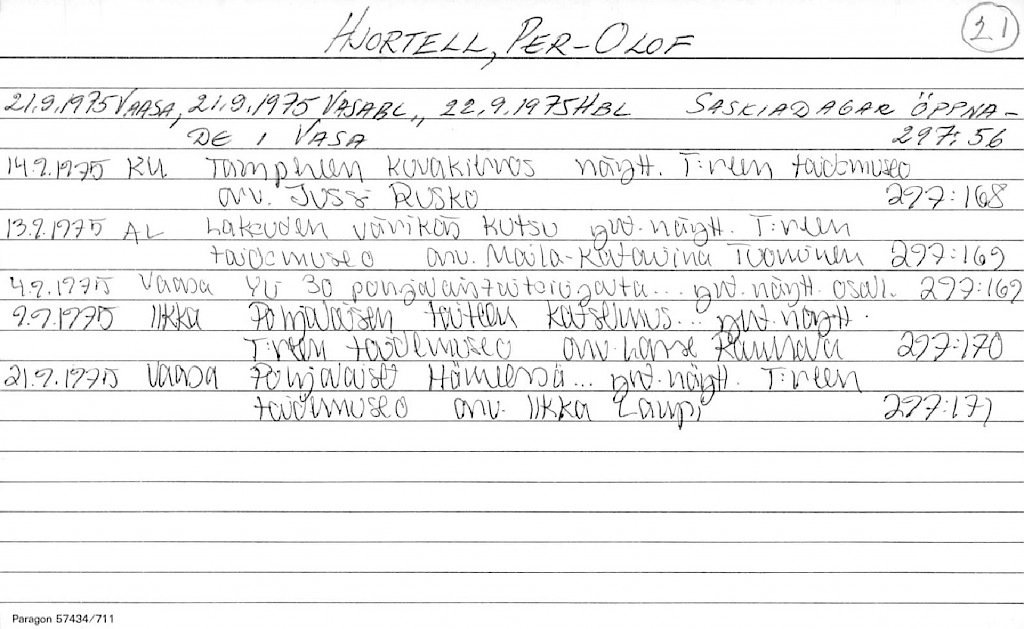 HJORTELL, PER-OLOF
21
21.9.1975 VAASA, 21.9.1975 VASABL., 22.9.1975 HBL SASKIADAGAR ÖPPNA-
DE I VASA 297:56
14.9.1975 KU Tampereen kuvakimos näytt. T:reen taidemuseo
arv. Jussi Rusko 297:168
13.9.1975 AL Lakeuden värikäs kutsu yht.näytt. T:reen
taidemuseo arv. Maila-Katariina Tuominen 297:169
4.9.1975 Vaasa Yli 30 pohjalaistaiteilijata... yht.näytt. osall. 297:169
9.9.1975 Ilkka Pohjalaisen taiteen katselmus... yht.näytt.
T:reen taidemuseo arv. Lasse Rauhava 297:170
21.9.1975 Vaasa Pohjalaiset Hämeessä... yht.näytt. T:reen
taidemuseo arv. Ilkka Laupi 297:171
Paragon 57434/711